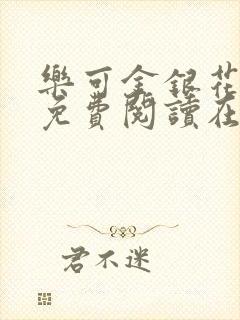 樂可金銀花
免費閱讀在
君不迷